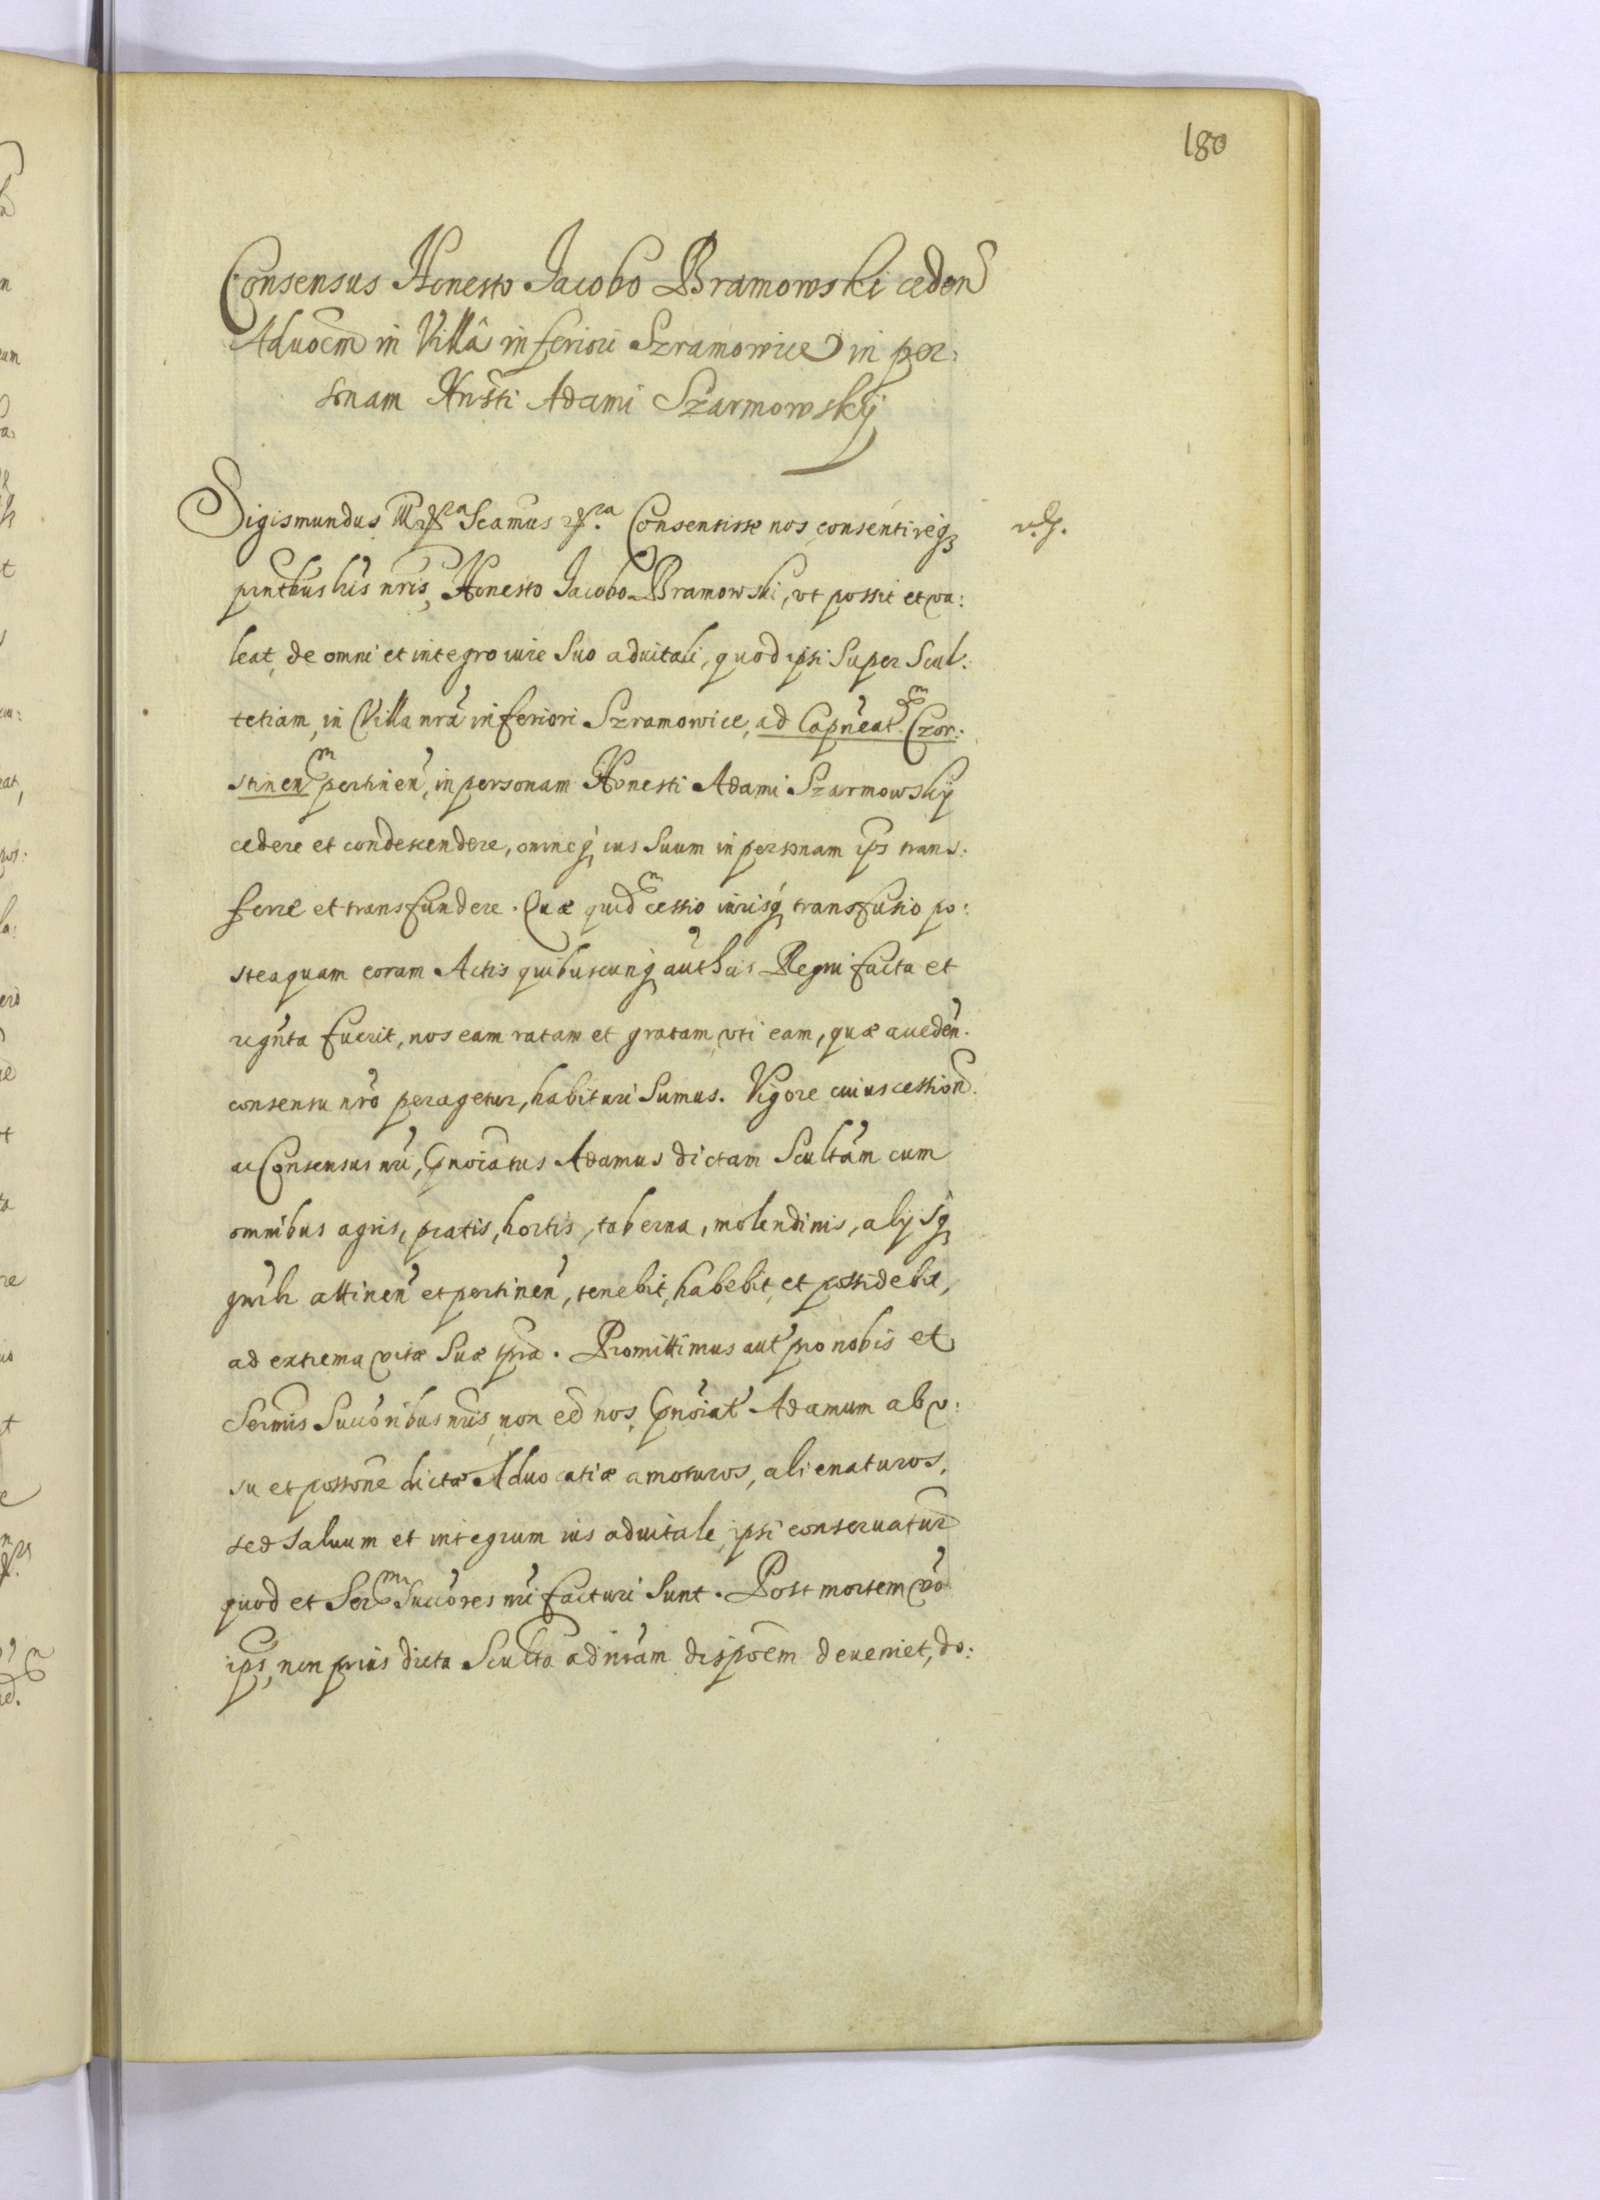 180
Consensus Honesto Jacobo Bramowski ceden̄
Aduocm̄ in Villâ inferiori Szramowice in per:
sonam Hnsti Adami Szarmowskÿ
Sigismundus III Scamus Consensisse nos, consentireq3
pn̄tbus his nrīs, Honesto Jacobo Bramowski, vt possit et va:
leat, de omni et integro iure suo aduitali, quod ipsi super Scul:
tetiam, in Villa nrā inferiori Szramowice, ad Capneatm Czor:
stinenm pertinen̄, in personam Honesti Adami Szarmowskÿ
cedere et condescendere, omneq̨ ius suum in personam ips̄ trans:
ferre et transfundere. Quæ quidm cessio iurisq̨ transfusio po:
steaquam coram Actis quibuscunq̨ auth̄cis Regni facta et
rign̄ta fuerit, nos eam ratam et gratam, vti eam, quæ acceden̄.
consensu nrō peragetur, habituri sumus. Vigore cuius cession̄.
ac Consensus nrī, pn̄oiatus Adamus dictam Scult̄am cum
omnibus agris, pratis, hortis, taberna, molendinis, alijsq̨
gnr̄lr attinen̄ et pertinen̄, tenebit, habebit, et possidebit,
ad extrema vitæ suæ tp̄ra. Promittimus aut̄ pro nobis et
Serm̄is Succōribus nrīs, non eē nos, pn̄oiat̄ Adamum ab v:
su et possōne dictæ Aduocatiæ amoturos, alienaturos,
sed saluum et integrum ius aduitale, ipsi conseruatur̄
quod et Serm Succōres nrī facturi sunt. Post mortem vō
ips̄, non prius dicta Scult̄a ad nrām dispōem deueniet, do: